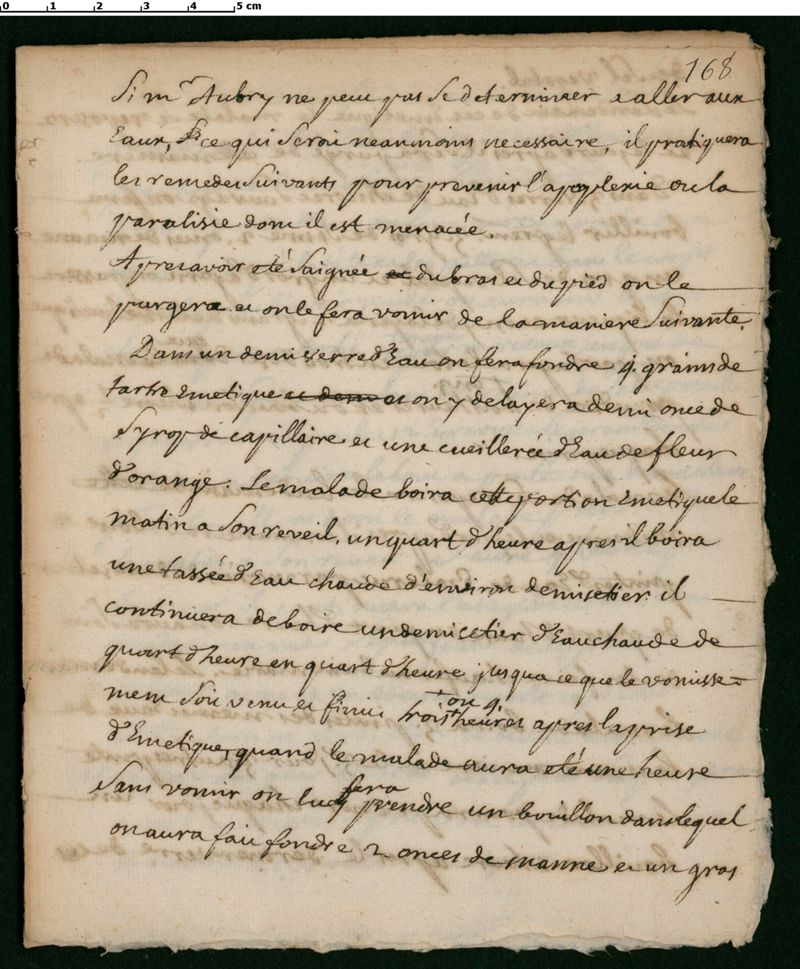 0 1 2 3 4 5 cm
168
Si mr Aubry ne peut pas se determiner a aller aux
Eaux, ce qui seroit neanmoins necessaire, il pratiquera
les remedes suivants pour prevenir l'apoplexie ou la
paralisie dont il est menacée.
Apres avoir eté saignée du bras et du pied on le
purgera et on le fera vomir de la maniere suivante.
Dans un demi verre d'Eau on fera fondre 4. grains de
tartre Emetique et demi et on y delayera demi once de
Syrop de capillaire et une cueillerée d'Eau de fleur
d'orange. Le malade boira cette portion Emetique le
matin a son reveil, un quart d'heure apres il boira
une tassée d'Eau chaude d'environ demisetier. il
continuera de boire un demisetier d'Eau chaude de
quart d'heure en quart d'heure jusqua ce que le vomisse=
ment soit venu et finit trois ou 4. heures apres la prise
d'Emetique, quand le malade aura eté une heure
sans vomir on luy fera prendre un bouillon dans lequel
on aura fait fondre 2 onces de manne et un gros